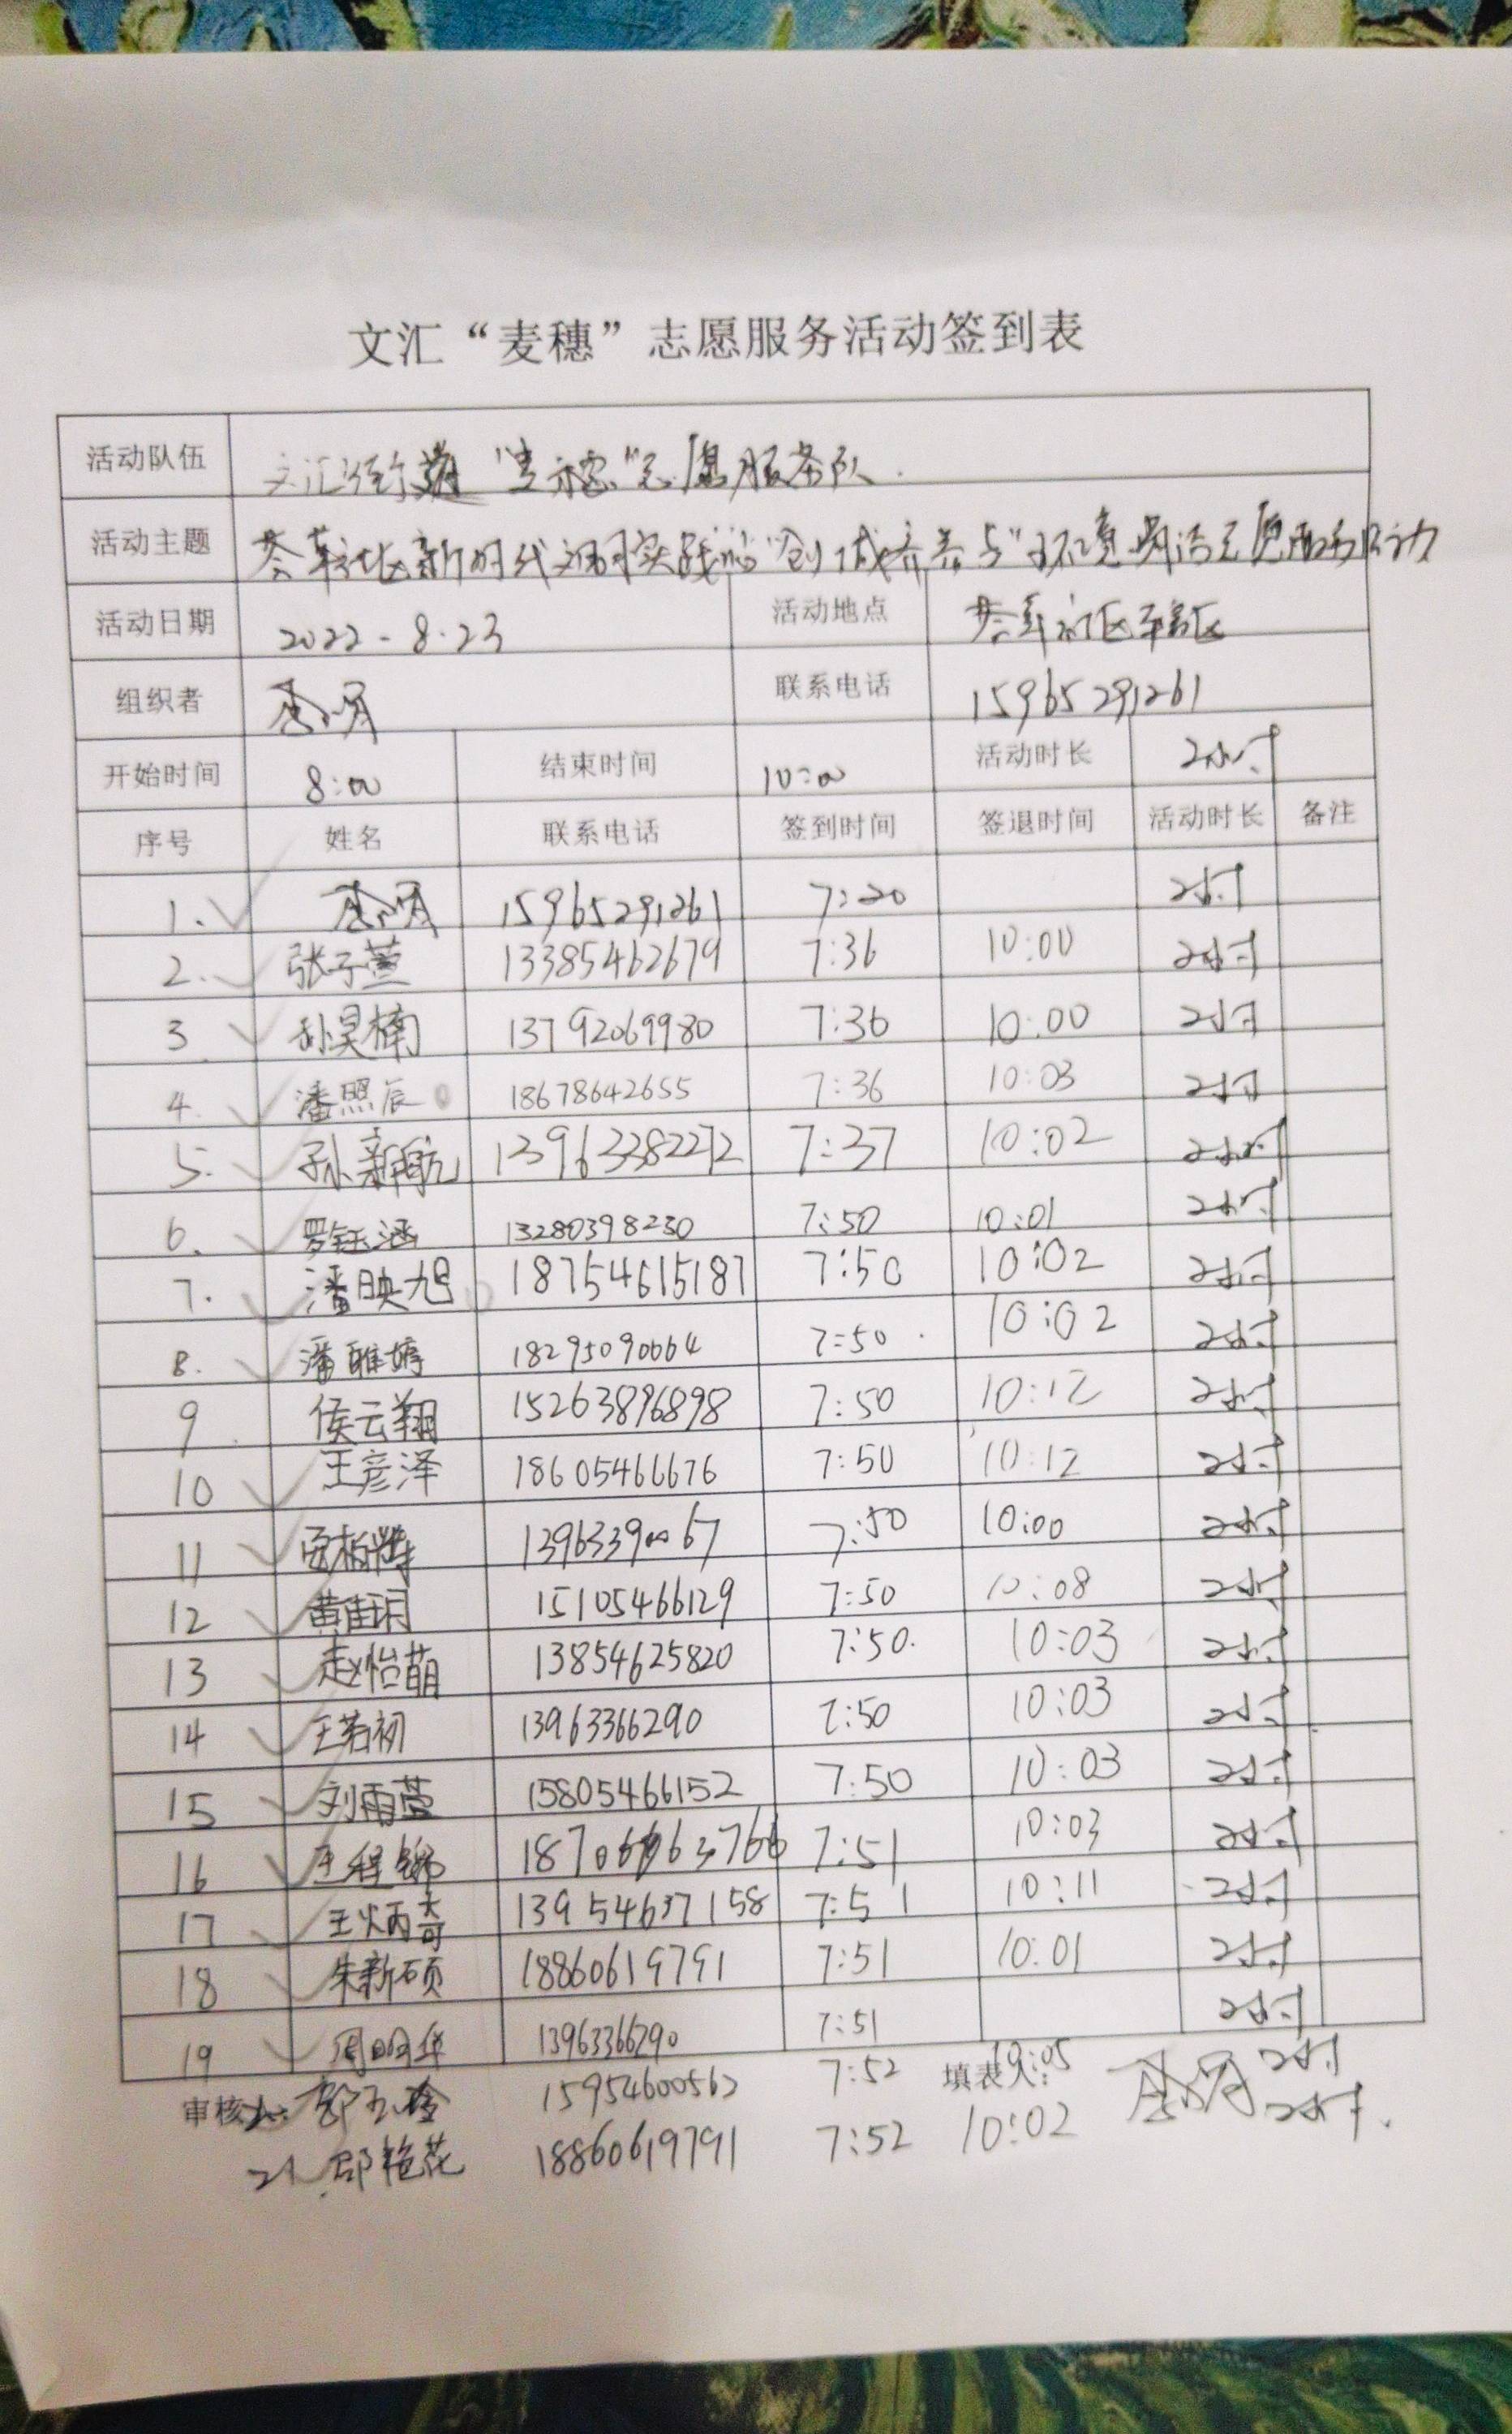 文汇“麦穗”志愿服务活动签到表
活动队伍 文汇街道“麦穗”志愿服务队.
活动主题 荟萃社区新时代文明实践站“创城齐参与”环境清洁志愿服务活动
活动日期 2022-8.23 活动地点 荟萃社区辖区
组织者 联系电话 15965291261
开始时间 8:00 结束时间 10:00 活动时长 2小时
序号 姓名 联系电话 签到时间 签退时间 活动时长 备注
1. 15965291261 7:20 2小时
2. 张子萱 13385462679 7:36 10:00 2小时
3 孙昊楠 13792069980 7:36 10:00 2小时
4. 潘照辰 18678642655 7:36 10:03 2小时
5. 孙新航 13963382272 7:37 10:02 2小时
6. 罗钰涵 13280398230 7:50 10:01 2小时
7. 潘映旭 18754615187 7:50 10:02 2小时
8. 潘雅婷 18295090664 7:50 10:02 2小时
9 侯云翔 15263896898 7:50 10:12 2小时
10 王彦泽 18605466676 7:50 10:12 2小时
11 13963390067 7:50 10:00 2小时
12 黄佳玥 15105466129 7:50 10:08 2小时
13 赵怡萌 13854625820 7:50. 10:03 2小时
14 王若初 13963366290 7:50 10:03 2小时
15 刘雨萱 15805466152 7:50 10:03 2小时
16 王程锦 7:51 10:03 2小时
17 王炳奇 13954637158 7:51 10:11 2小时
18 朱新硕 18860619791 7:51 10:01 2小时
19 周明华 13963366290 7:51 2小时
审核人: 郭玉玲 15954600562 7:52 填表人: 10:05 2小时
21 邵艳花 18860619791 7:52 10:02 2小时.